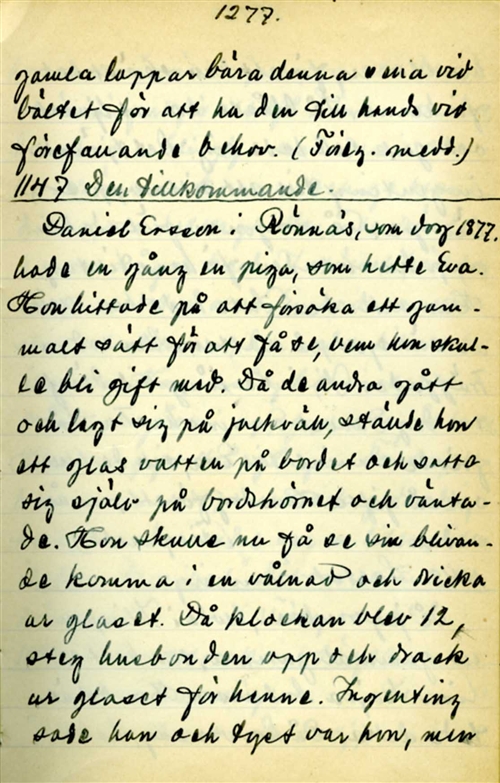 1277.
gamla lappar bära denna sena vid
bältet för att ha den till hands vid
förefallande behov. (Föreg. medd.)
1147 Den tillkommande.
Daniel Ersson i Rönnäs, som dog 1877,
hade en gång en piga, som hette Eva.
Hon hittade på att försöka ett gam-
malt sätt för att få se, vem hon skul-
le bli gift med. Då de andra gått
och lagt sig på julkväll, ställde hon
ett glas vatten på bordet och satte
sig själv på bordshörnet och vänta-
de. Hon skulle nu få se sin blivan-
de komma i en vålnad och dricka
ur glaset. Då klockan blev 12,
steg husbonden upp och drack
ur glaset för henne. Ingenting
sade han och tyst var hon, men